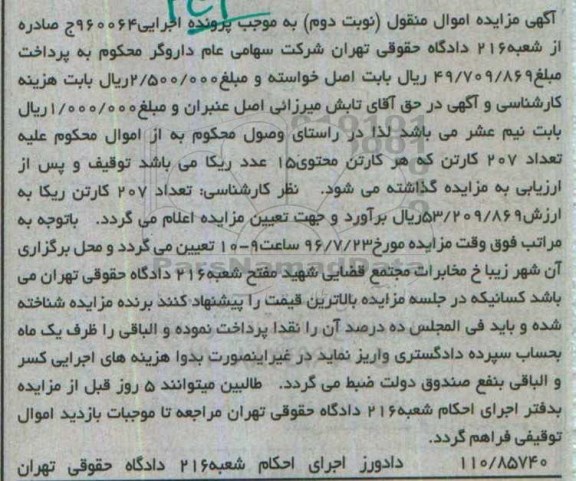 آگهی مزایده اموال منقول (نوبت دوم) به موجب پرونده اجرایی۹۶۰۰۶۴ج صادره
از شعبه۲۱۶ دادگاه حقوقی تهران شرکت سهامی عام داروگر محکوم به پرداخت
مبلغ۴۹/۷۰۹/۸۶۹ ریال بابت اصل خواسته و مبلغ۲/۵۰۰/۰۰۰ریال بابت هزینه
کارشناسی و آگهی در حق آقای تابش میرزائی اصل عنبران و مبلغ۱/۰۰۰/۰۰۰ریال
بابت نیم عشر می باشد لذا در راستای وصول محکوم به از اموال محکوم علیه
تعداد ۲۰۷ کارتن که هر کارتن محتوی۱۵ عدد ریکا می باشد توقیف و پس از
ارزیابی به مزایده گذاشته می شود. نظر کارشناسی: تعداد ۲۰۷ کارتن ریکا به
ارزش۵۳/۲۰۹/۸۶۹ریال برآورد و جهت تعیین مزایده اعلام می گردد. باتوجه به
مراتب فوق وقت مزایده مورخ۹۶/۷/۲۳ ساعت۹-۱۰ تعیین می گردد و محل برگزاری
آن شهر زیبا خ مخابرات مجتمع قضایی شهید مفتح شعبه۲۱۶ دادگاه حقوقی تهران می
باشد کسانیکه در جلسه مزایده بالاترین قیمت را پیشنهاد کنند برنده مزایده شناخته
شده و باید فی المجلس ده درصد آن را نقدا پرداخت نموده و الباقی را ظرف یک ماه
بحساب سپرده دادگستری واریز نماید در غیراینصورت بدوا هزینه های اجرایی کسر
و الباقی بنفع صندوق دولت ضبط می گردد. طالبین میتوانند ۵ روز قبل از مزایده
بدفتر اجرای احکام شعبه۲۱۶ دادگاه حقوقی تهران مراجعه تا موجبات بازدید اموال
توقیفی فراهم گردد.
۱۱۰/۸۵۷۴۰ دادورز اجرای احکام شعبه۲۱۶ دادگاه حقوقی تهران
ParsNamadData